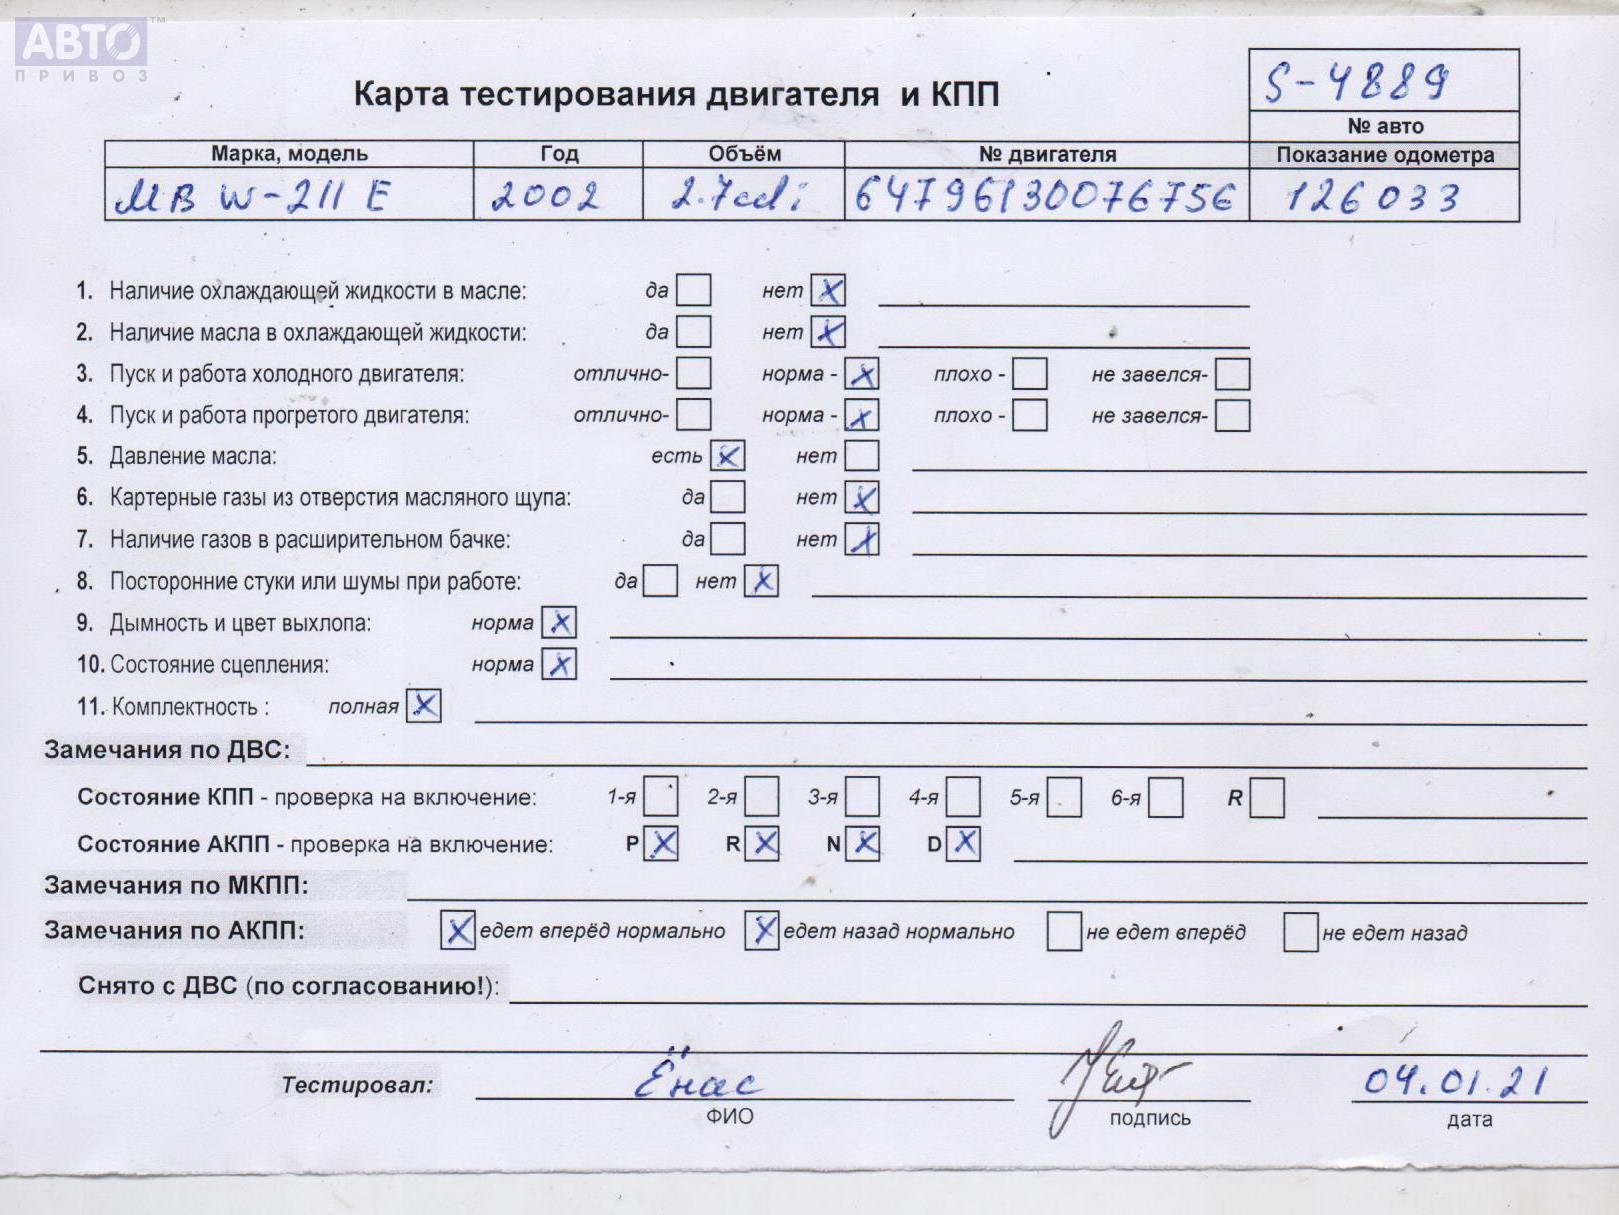 АВТО ™
ПРИВОЗ
Карта тестирования двигателя и КПП
S-4889
№ авто
Марка, модель Год Объём № двигателя Показание одометра
МВ W-211 E 2002 2.7cdi 64796130076756 126033
1. Наличие охлаждающей жидкости в масле: да нет X
2. Наличие масла в охлаждающей жидкости: да нет X
3. Пуск и работа холодного двигателя: отлично- норма - X плохо - не завелся-
4. Пуск и работа прогретого двигателя: отлично- норма - X плохо - не завелся-
5. Давление масла: есть X нет
6. Картерные газы из отверстия масляного щупа: да нет X
7. Наличие газов в расширительном бачке: да нет X
8. Посторонние стуки или шумы при работе: да нет X
9. Дымность и цвет выхлопа: норма X
10. Состояние сцепления: норма X
11. Комплектность : полная X
Замечания по ДВС:
Состояние КПП - проверка на включение: 1-я 2-я 3-я 4-я 5-я 6-я R
Состояние АКПП - проверка на включение: P X R X N X D X
Замечания по МКПП:
Замечания по АКПП: X едет вперёд нормально X едет назад нормально не едет вперёд не едет назад
Снято с ДВС (по согласованию!):
Тестировал: Ёнас 04.01.21
ФИО подпись дата